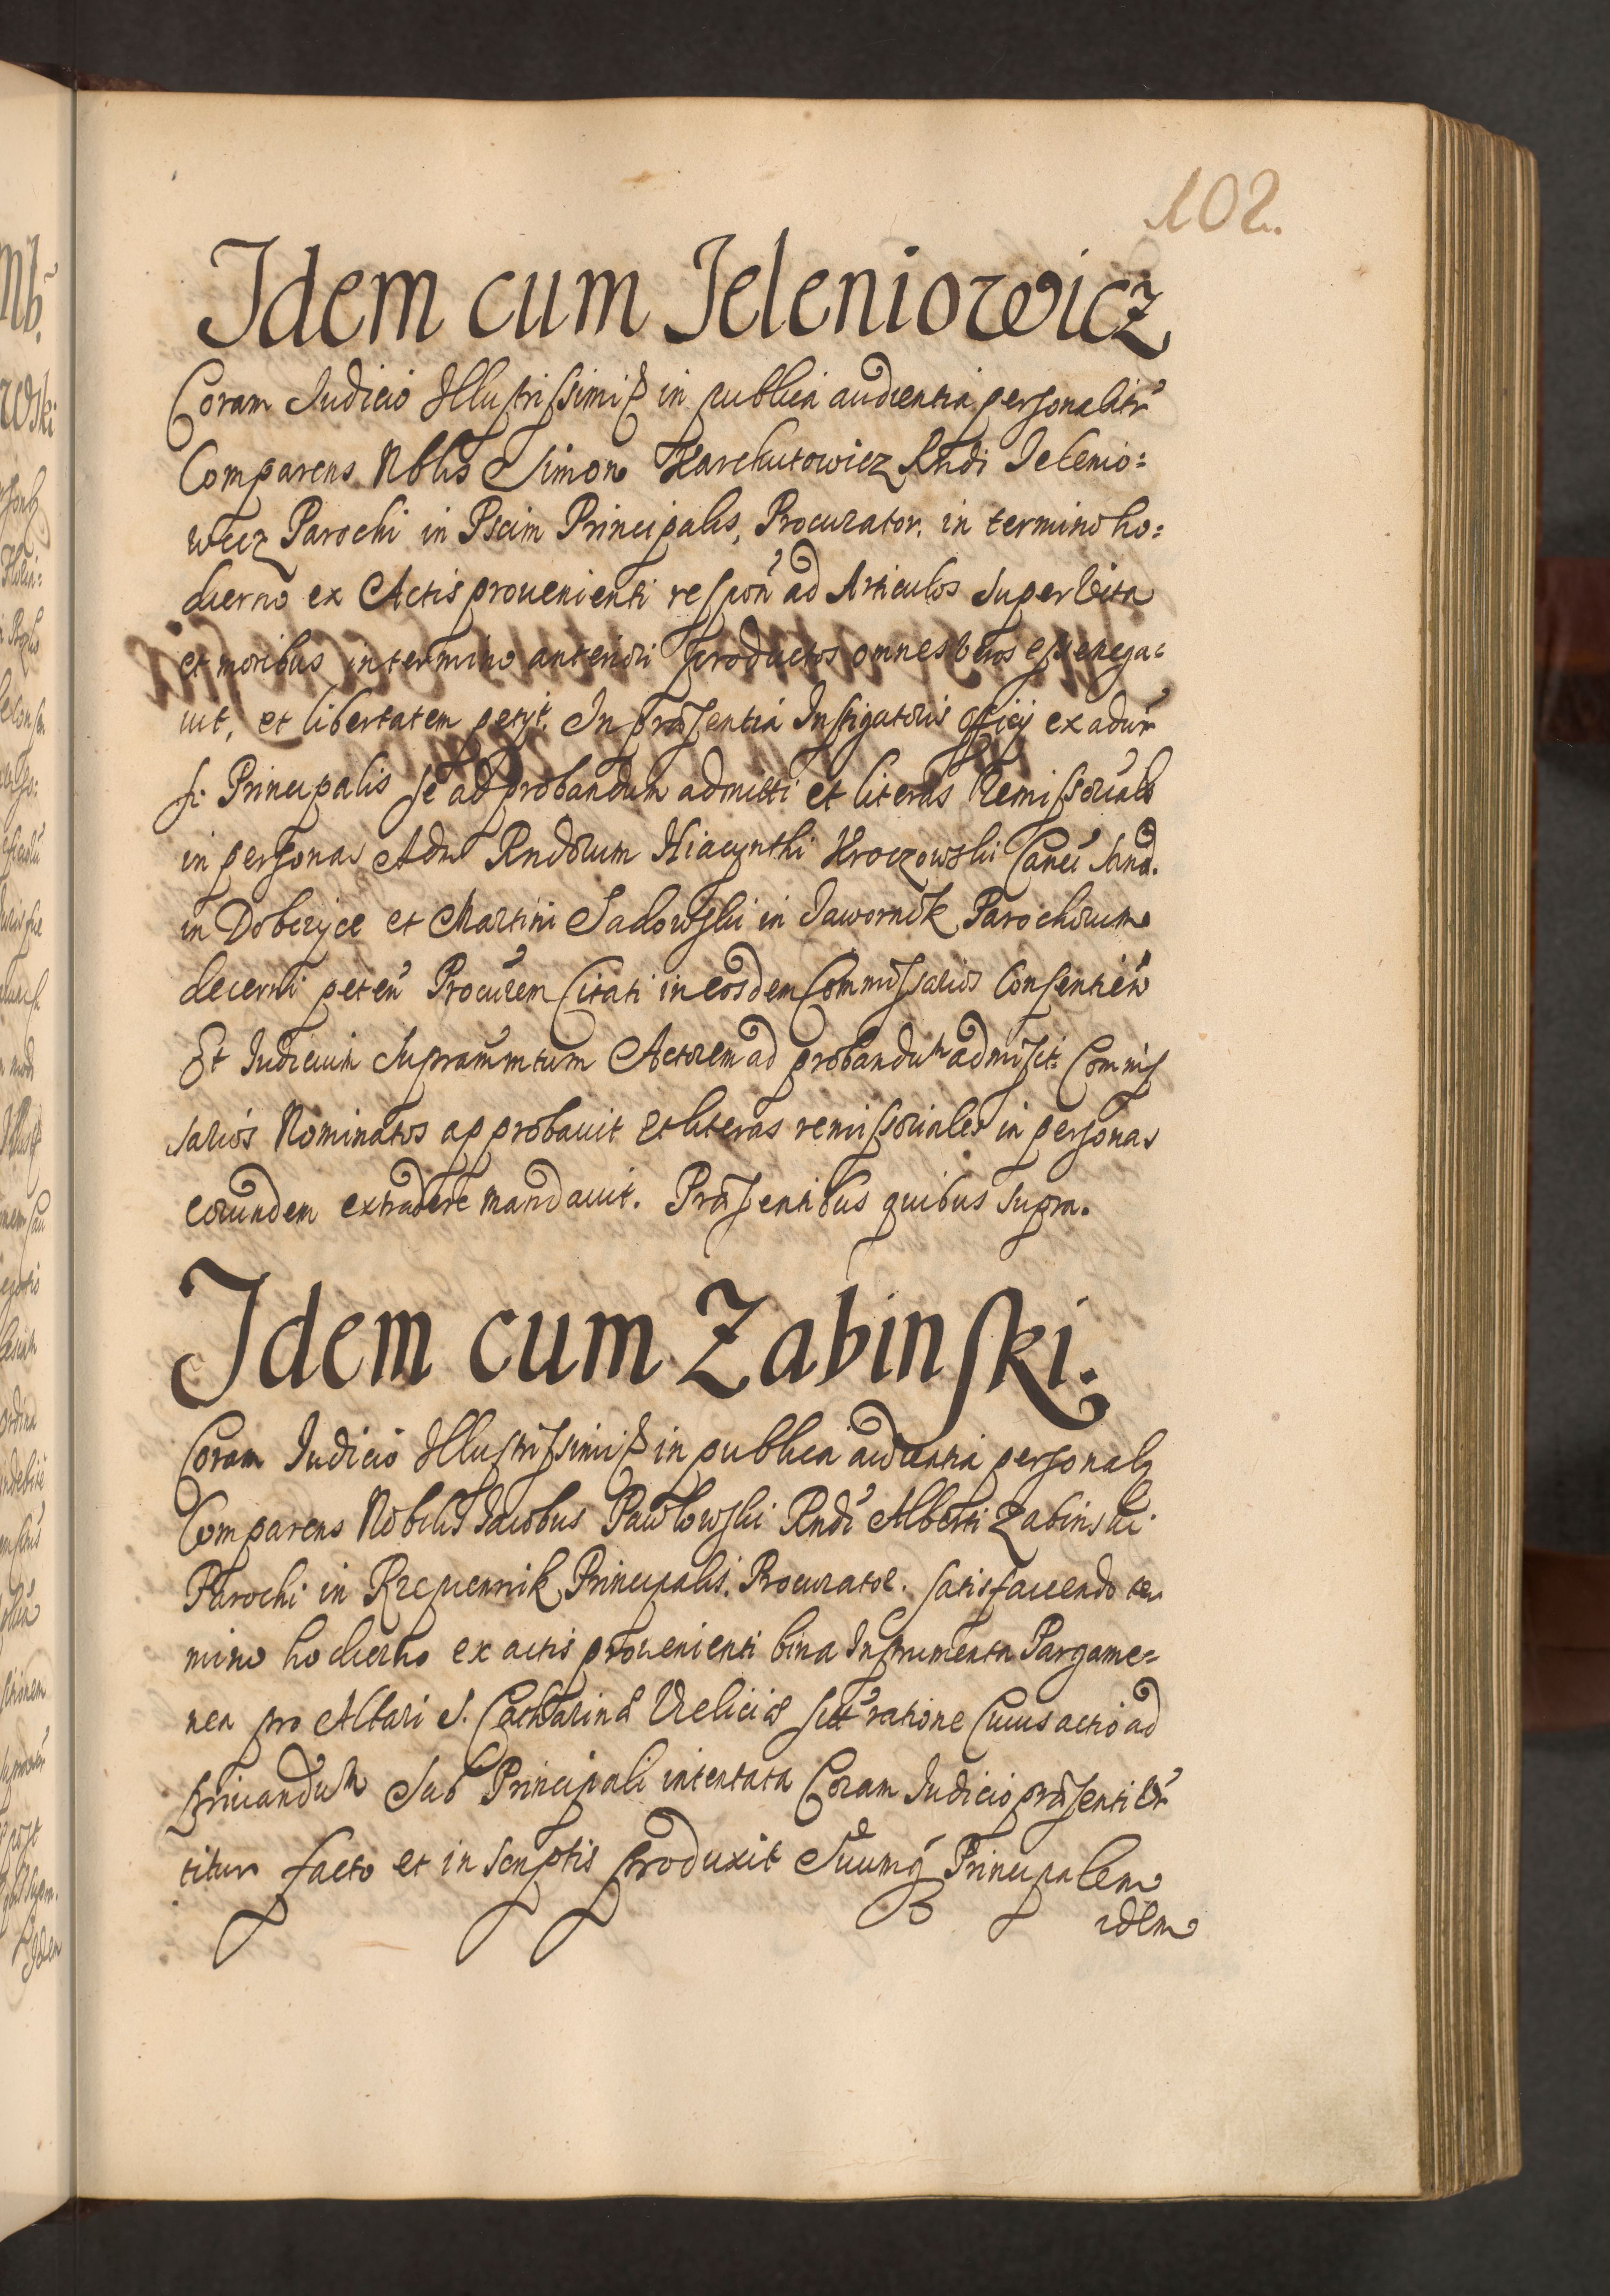 102.
Idem cum Jeleniowicz
Coram Judicio Illustrissimi &c in publica audientia personalitr
Comparens Nblis Simon Karchutowicz Rndi Jelenio=
wicz Parochi in Pscim Principalis, Procurator. in termino ho=
dierno ex Actis prouenienti respon ad Articulos super Vita
et moribus in termino anteriori productos omnes veros esse nega=
uit, et libertatem petyt. In præsentia Instigatoris officij ex aduer
si Principalis se ad probandum admitti et literas Remissoriales
in personas Adm Rndorum Hiacynthi Kroczowski Canci Sand.
in Dobczyce et Martini Sadowski in Jawornik Parochorum
decerni peten Procurem Citati in eosdem Commissarios Consentien
Et Judicium supramntum Actorem ad probandum admisit. Commis
sarios Nominatos approbauit et literas remissoriales in personas
eorundem extradere mandauit. Præsentibus quibus supra.
Idem cum Zabinski.
Coram Judicio Illustrissimi &c in publica audientia personalr
Comparens Nobilis Jacobus Pawlowski Rndi Alberti Zabinski
Parochi in Rzepiennik Principalis. Procurator. satisfaciendo ter
mino hodierno ex actis prouenienti bina Instrumenta Pargame=
nea pro Altari S. Catharinæ Vieliciæ ratione Cuius actio ad
priuandum Sub Principali intentata Coram Judicio præsenti ver
titur facto et in scriptis produxit Suumq Principalem
idem